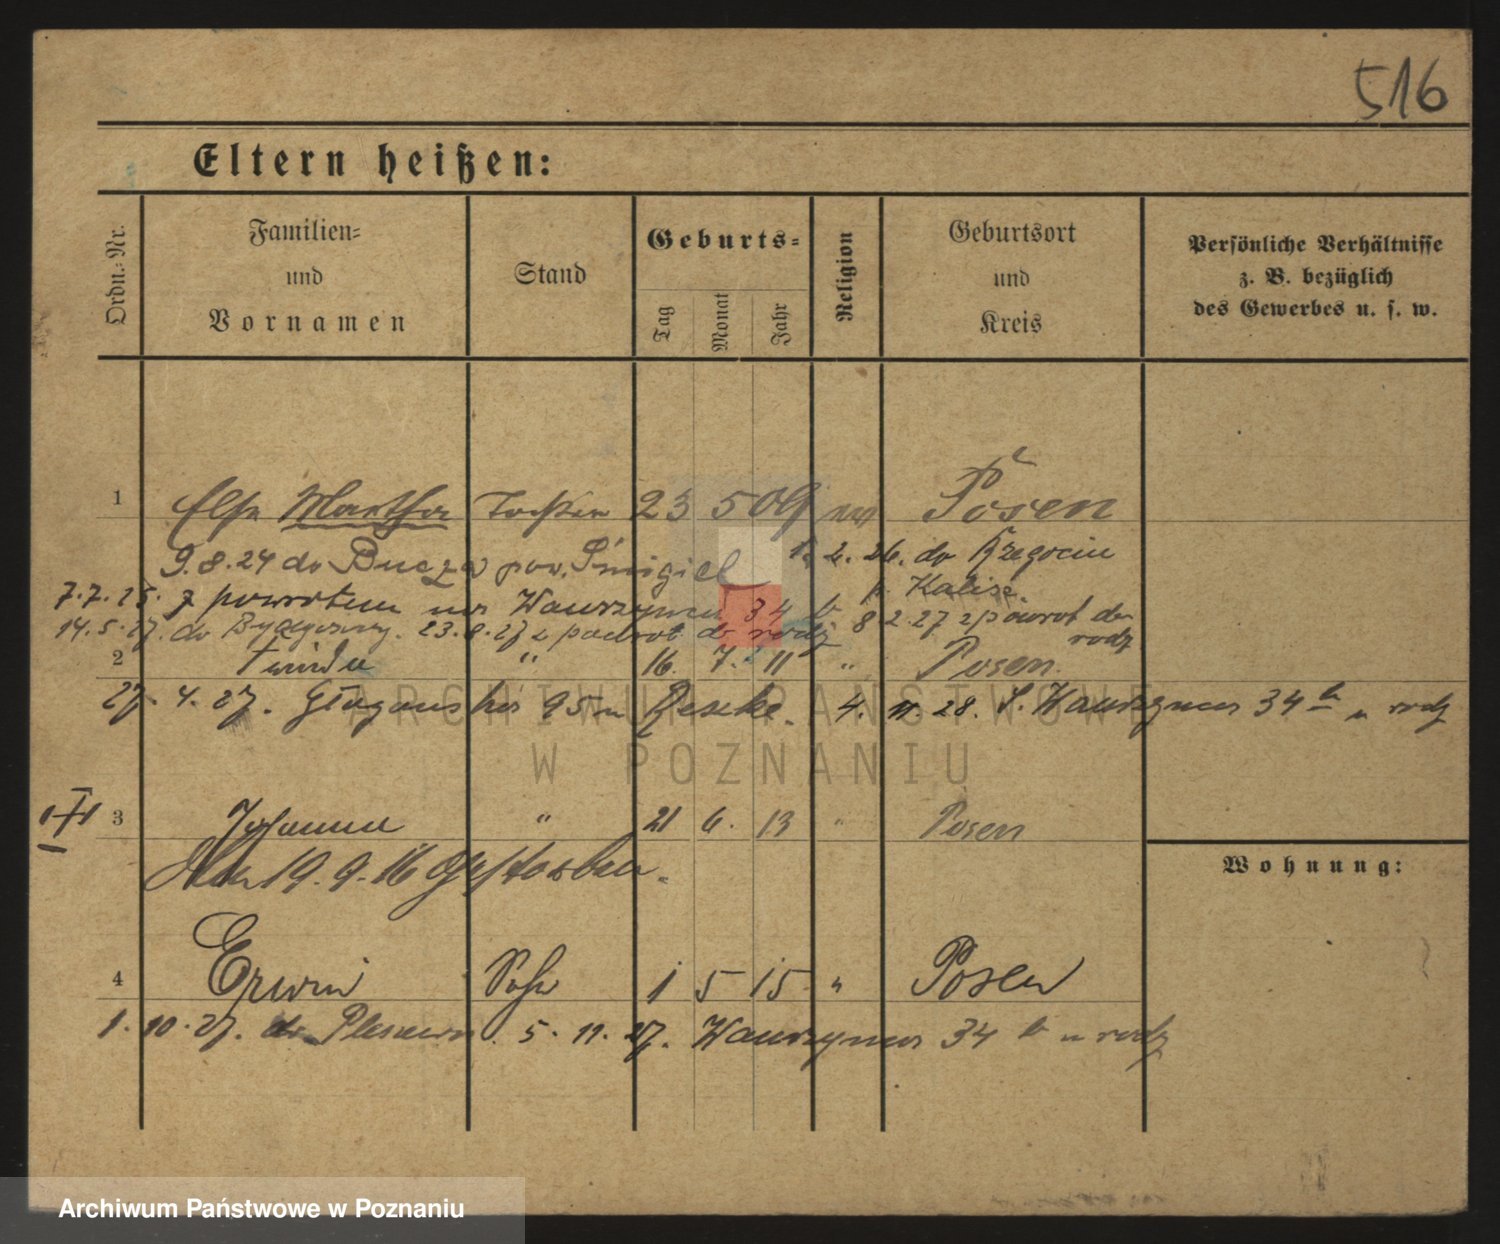 516
Eltern heißen:
Ordn.-Nr.
Familien-
und
Vornamen
Stand
Geburts-
Tag
Monat
Jahr
Religion
Geburtsort
und
Kreis
Persönliche Verhältnisse
z. B. bezüglich
des Gewerbes u. s. w.
1 Else Martha Tochter 23 5 09 Posen
9.8.24 do Bucza pow. Śmigiel 1. 2. 26. do
p. Kalisz.
7.7.25. z powrotem Wawrzyńca 34 b 8 2.27 z powrot do
rodz
14.5.27. do Bydgoszczy. 23.8.27 z powrot do rodz
2 " 16. 7. 11 " Posen.
27. 4. 27. 95 u 4. 11 28. Wawrzyńca 34 b u rodz
3 Johanna " 21 6. 13 " Posen
Am 19.9.16 gestorben.
Wohnung:
4 Erwin Sohn 1 5 15 " Posen
1. 10. 27. do 5. 11. 27. Wawrzyńca 34 b u rodz
ARCHIWUM PAŃSTWOWE
W POZNANIU
Archiwum Państwowe w Poznaniu